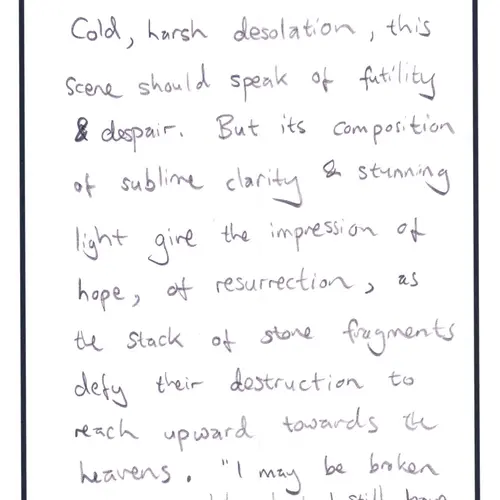 Cold, harsh desolation, this
scene should speak of futility
& despair. But its composition
of sublime clarity & stunning
light give the impression of
hope, of resurrection, as
the stack of stone fragments
defy their destruction to
reach upward towards the
heavens. "I may be broken
I still have